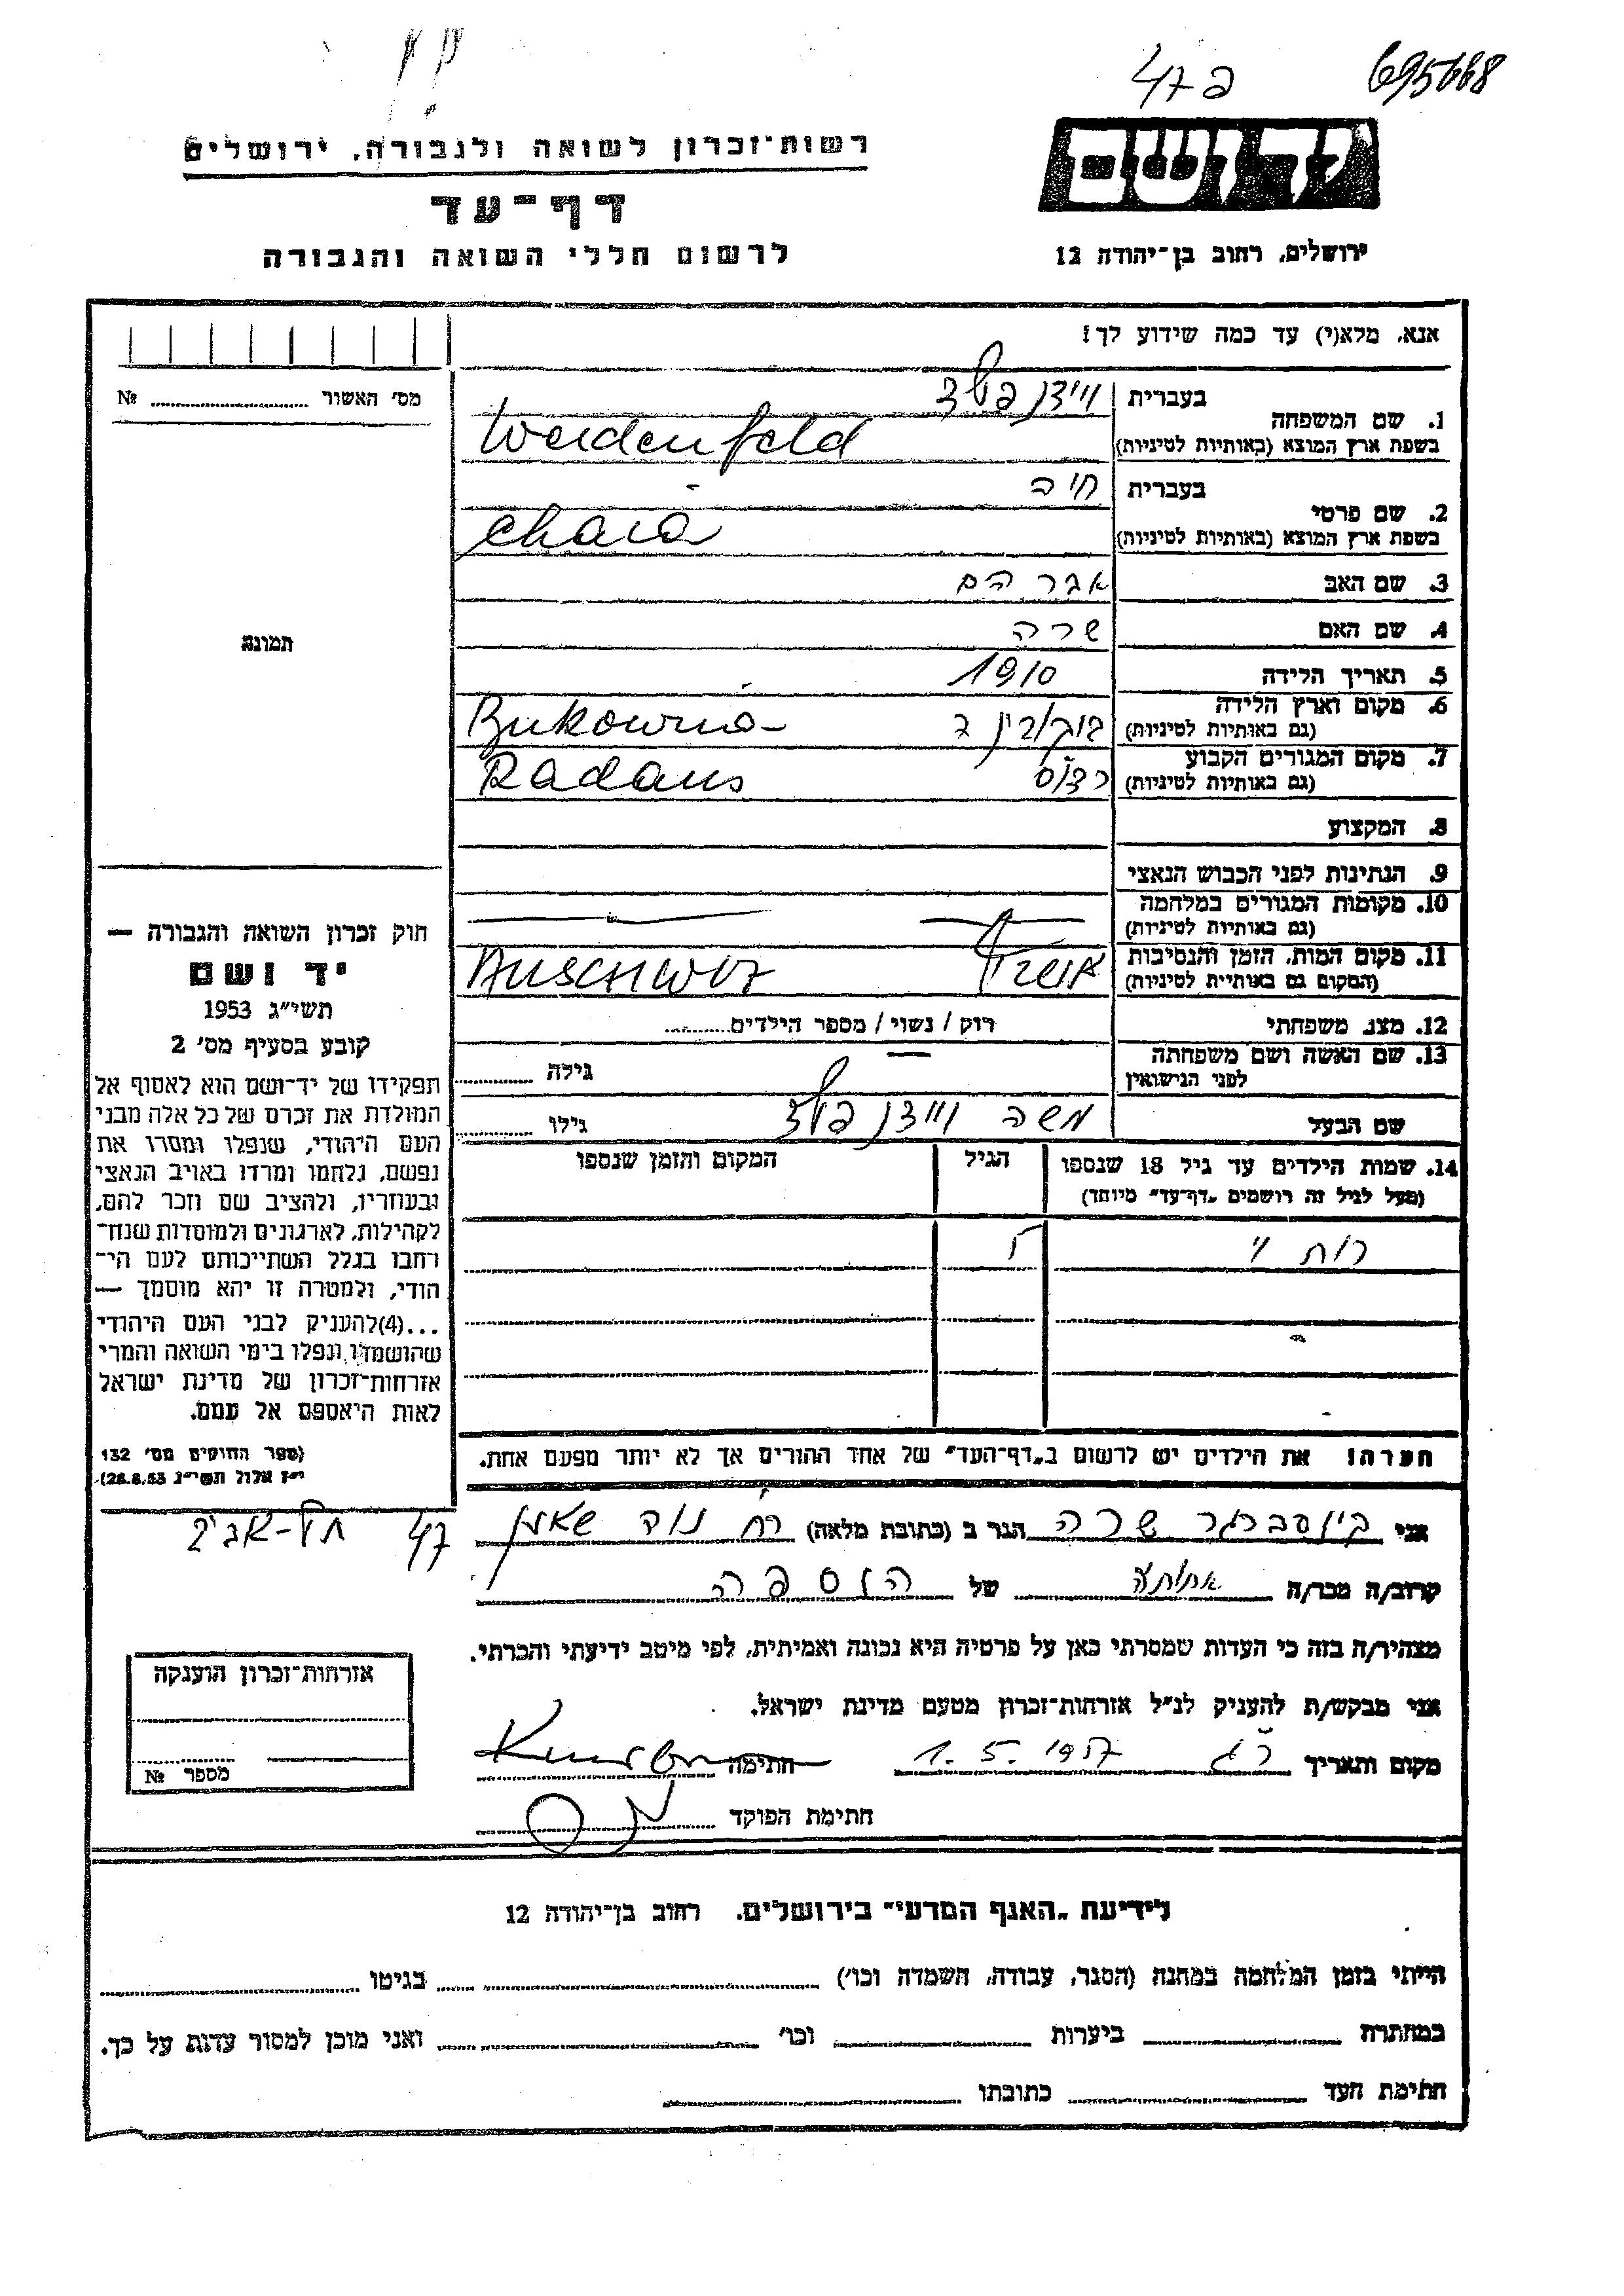 695668
פ 47
יד ושם
ירושלים, רחוב בן־יהודה 12
רשות־זכרון לשואה ולגבורה, ירושלים
דף־עד
לרשום חללי השואה והגבורה
אנא, מלא(י) עד כמה שידוע לך!
מס׳ האשור ........ №
1. שם המשפחה
בעברית ויידנפלד
בשפת ארץ המוצא (באותיות לטיניות) Weidenfeld
2. שם פרטי
בעברית חיה
בשפת ארץ המוצא (באותיות לטיניות) Chaia
3. שם האב אברהם
4. שם האם שרה
5. תאריך הלידה 1910
6. מקום וארץ הלידה (גם באותיות לטיניות) בוקובינה Bukowina
7. מקום המגורים הקבוע (גם באותיות לטיניות) רדאוץ Radaus
8. המקצוע
9. הנתינות לפני הכבוש הנאצי
10. מקומות המגורים במלחמה (גם באותיות לטיניות) — —
11. מקום המות, הזמן והנסיבות (המקום גם באותיות לטיניות) אושויץ Auschwitz
12. מצב משפחתי רוק / נשוי / מספר הילדים
13. שם האשה ושם משפחתה לפני הנישואין — גילה
שם הבעל משה ויידנפלד גילו
14. שמות הילדים עד גיל 18 שנספו (מעל לגיל זה רושמים „דף־עד״ מיוחד)
הגיל
המקום והזמן שנספו
רות ו׳
הערה! את הילדים יש לרשום ב„דף־העד״ של אחד ההורים אך לא יותר מפעם אחת.
תמונה
חוק זכרון השואה והגבורה —
יד ושם
תשי״ג 1953
קובע בסעיף מס׳ 2
תפקידו של יד־ושם הוא לאסוף אל
המולדת את זכרם של כל אלה מבני
העם היהודי, שנפלו ומסרו את
נפשם, נלחמו ומרדו באויב הנאצי
ובעוזריו, ולהציב שם וזכר להם,
לקהילות, לארגונים ולמוסדות שנח־
רחבו בגלל השתייכותם לעם הי־
הודי, ולמטרה זו יהא מוסמך —
...(4)להעניק לבני העם היהודי
שהושמדו ונפלו בימי השואה והמרי
אזרחות־זכרון של מדינת ישראל
לאות היאספם אל עמם.
(ספר החוקים מס׳ 132
י״ז אלול תשי״ג 28.8.53)
אני שרה הגר ב (כתובת מלאה) רח 47 תל-אביב
קרוב/ה מכר/ה אחותה של הנספה
מצהיר/ה בזה כי העדות שמסרתי כאן על פרטיה היא נכונה ואמיתית, לפי מיטב ידיעתי והכרתי.
אני מבקש/ת להעניק לנ״ל אזרחות־זכרון מטעם מדינת ישראל.
מקום ותאריך ר״ג 1.5.1957 חתימה
חתימת הפוקד
אזרחות־זכרון הוענקה
מספר №
לידיעת „האגף המדעי״ בירושלים, רחוב בן־יהודה 12
הייתי בזמן המלחמה במחנה (הסגר, עבודה, השמדה וכו׳) בגיטו
במחתרת ביערות וכו׳ ואני מוכן למסור עדות על כך.
חתימת העד כתובתו